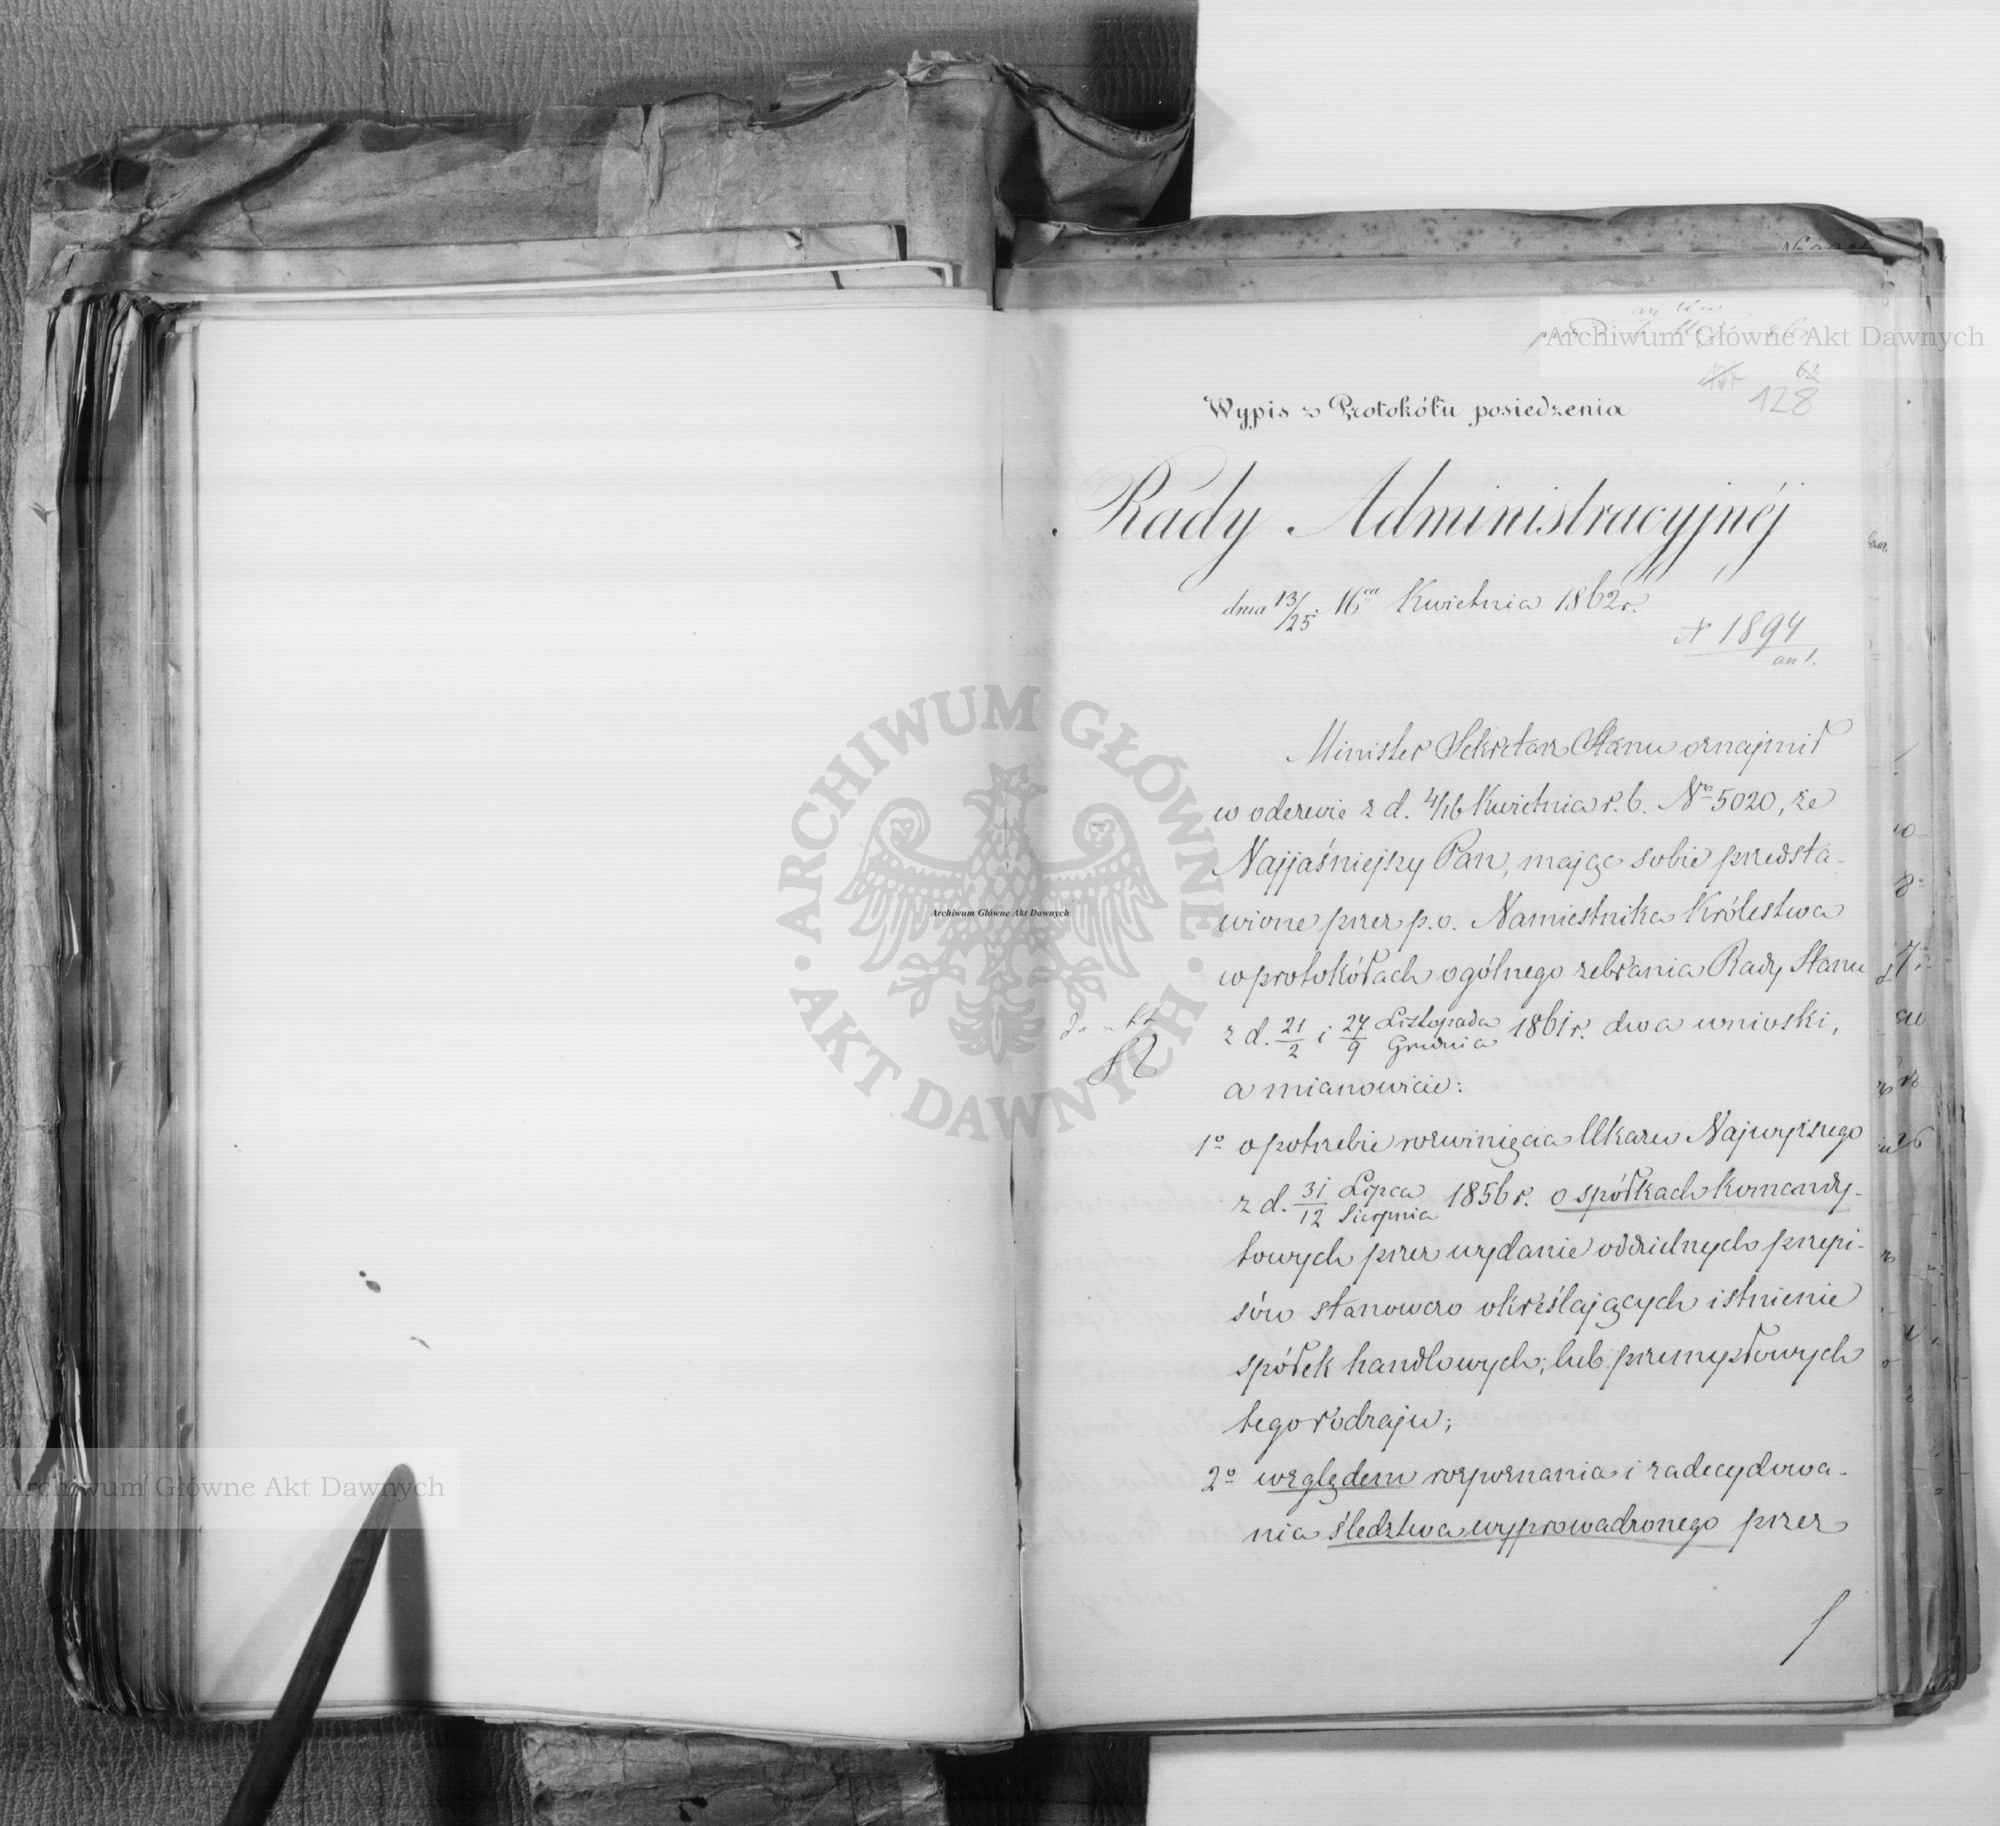 128
Wypis z Protokółu posiedzenia
Rady Administracyjnéj
dnia 13/25 Kwietnia 1862 r.
N 1894
Minister Sekretarz Stanu oznajmił
w odezwie z d. 4/16 Kwietnia r. b. Nro 5020, że
Najjaśniejszy Pan, mając sobie przedsta-
wione przez p.o. Namiestnika Królestwa
w protokółach ogólnego zebrania Rady Stanu
z d. 21/2 i 27/9 Listopada/Grudnia 1861 r. dwa wnioski,
a mianowicie:
1o o potrzebie rozwinięcia Ukazu Najwyższego
z d. 31/12 Lipca/Sierpnia 1856 r. o spółkach komandy-
towych przez wydanie oddzielnych przepi-
sów stanowczo określających istnienie
spółek handlowych, lub przemysłowych
tego rodzaju;
2o względem rozpoznania i zadecydowa-
nia śledztwa wyprowadzonego przez
Archiwum Główne Akt Dawnych
ARCHIWUM GŁÓWNE · AKT DAWNYCH ·
Archiwum Główne Akt Dawnych
Archiwum Główne Akt Dawnych